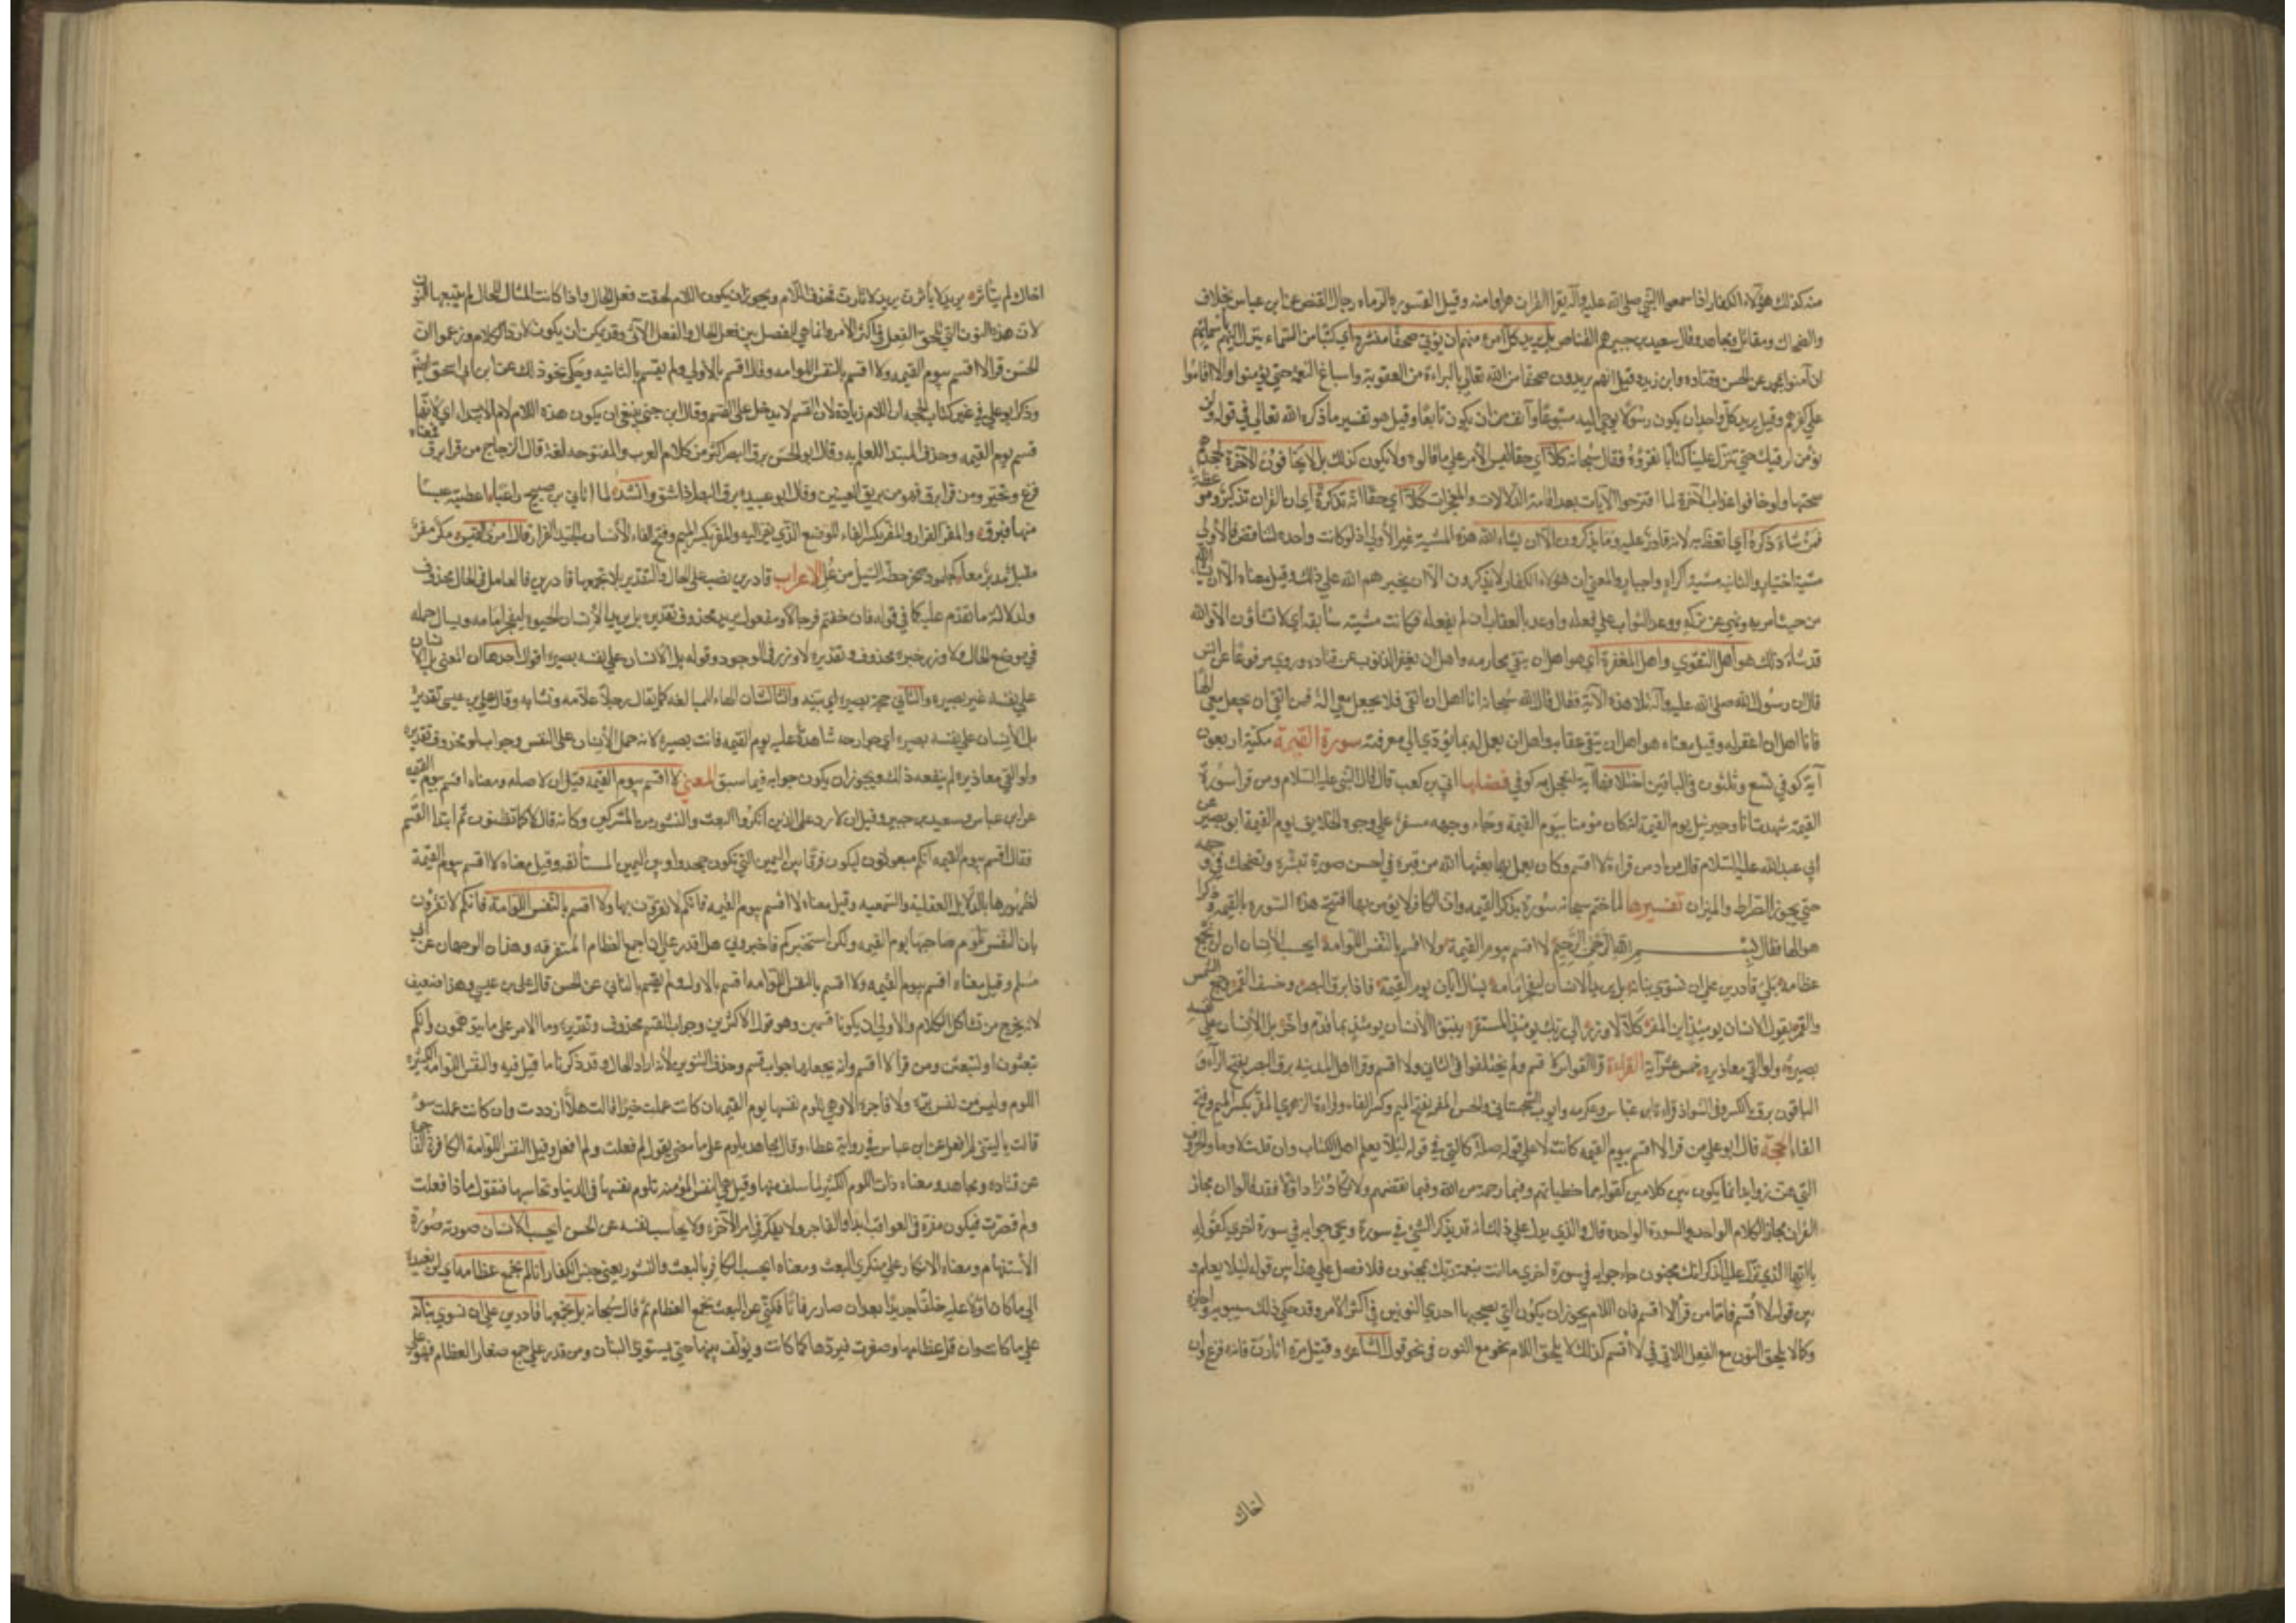 منه كذلك هؤلاء الكفار اذا سمعوا النبي صلى الله عليه وآله يقرا القران هربوا منه وقيل القسورة الرماة ورجال القنص عن ابن عباس بخلاف
والضحاك ومقاتل ومجاهد وقال سعيد بن جبير هم القناص بل يريد كل امرء منهم ان يؤتى صحفا منشرة اي كتبا من السماء يتنزل اليهم باسمائهم
ان آمنوا بمحمد عن الحسن وقتاده وابن زيد وقيل انهم يريدون صحفا من الله تعالى بالبراءة من العقوبة واسباغ النعمة حتى يؤمنوا والا اقاموا
على كفرهم وقيل يريد كل واحد ان يكون رسولا يوحى اليه متبوعا وآنف من ان يكون تابعا وقيل هو تفسير ما ذكره الله تعالى في قوله ولن
نؤمن لرقيك حتى تنزل علينا كتابا نقرؤه فقال سبحانه كلا اي حقا ليس الامر على ما قالوه ولا يكون كذلك بل لا يخافون الآخرة بجحدهم
صحتها ولو خافوا عذاب الآخرة لما اقترحوا الآيات بعد اقامة الدلالات والمعجزات كلا اي حقا انه تذكرة اي ان القران تذكير وموعظة
فمن شاء ذكره اي اتعظ به لانه قادر عليه وما يذكرون الا ان يشاء الله هذه المشية غير الاولى اذ لو كانت واحدة لتناقض فالاولى
مشية اختيار والثانيه مشية اكراه واجبار والمعنى ان هؤلاء الكفار لا يذكرون الا ان يجبرهم الله على ذلك وقيل معناه الا ان يشاء الله
من حيث امر به ونهى عن تركه ووعد الثواب على فعله واوعد بالعقاب ان لم يفعله فكانت مشيته سابقة اي لا تشاؤن الا والله
قد شاء ذلك هو اهل التقوى واهل المغفرة اي هو اهل ان يتقى محارمه واهل ان يغفر الذنوب عن قتاده وروي مرفوعا عن انس
قال ان رسول الله صلى الله عليه وآله تلا هذه الآية فقال قال الله سبحانه انا اهل ان اتقى فلا يجعل معي اله فمن اتقى ان يجعل معي الها
فانا اهل ان اغفر له وقيل معناه هو اهل ان يتقى عقابه واهل ان يعمل له بما يؤدي الى مغفرته سورة القيمة مكية اربعون
آية كوفي تسع وثلثون في الباقين اختلافها آية لتعجل به كوفي فضلها ابي بن كعب قال قال النبي عليه السلام ومن قرأ سورة
القيمة شهدت انا وجبرئيل يوم القيمة له انه كان مؤمنا بيوم القيمة وجاء ووجهه مسفر على وجوه الخلايق يوم القيمة ابو بصير عن
ابي عبد الله عليه السلام قال من ادمن قراءة لا اقسم وكان يعمل بها بعثها الله من قبره في احسن صورة تبشره وتضحك في وجهه
حتى يجوز الصراط والميزان تفسيرها لما ختم سبحانه سورة بذكر القيمه وان الكافر لا يؤمن بها افتتح هذه السورة بالقيمة وذكر
هوالها فقال بسم الله الرحمن الرحيم لا اقسم بيوم القيمة ولا اقسم بالنفس اللوامة ايحسب الانسان ان لن نجمع
عظامه بلى قادرين على ان نسوي بنانه بل يريد الانسان ليفجر امامه يسال ايان يوم القيمة فاذا برق البصر وخسف القمر وجمع الشمس
والقمر يقول الانسان يومئذ اين المفر كلا لا وزر الى ربك يومئذ المستقر ينبؤا الانسان يومئذ بما قدم واخر بل الانسان على نفسه
بصيرة ولو القى معاذيره خمس عشر آية القراءة قرا القواس لا قسم ولم يختلفوا في الثاني ولا اقسم وقرا اهل المدينه برق البصر بفتح الراء و
الباقون برق بالكسر وفي الشواذ قراءة ابن عباس وعكرمه وايوب السختياني والحسن المفر بفتح الميم وكسر الفاء وقراءة الزهري المفر بكسر الميم وفتح
الفاء الحجة قال ابو علي من قرا لا اقسم بيوم القيمه كانت لا على قوله صلة كالتي في قوله لئلا يعلم اهل الكتاب وان قلت لا وما والحروف
التي هن زوايد انما يكون بين كلامين كقوله مما خطياتهم وفبما رحمة من الله وفبما نقضهم ولا تكاد تزاد اولا فقد قالوا ان مجاز
القران مجاز الكلام الواحد والسورة الواحده قال والذي يدل على ذلك انه قد يذكر الشئ في سورة ويجئ جوابه في سورة اخرى كقوله
يا ايها الذي نزل عليه الذكر انك لمجنون جاء جوابه في سورة اخرى ما انت بنعمة ربك بمجنون فلا فصل على هذا بين قوله لئلا يعلم و
بين قوله لا اقسم فاما من قرا لا اقسم فان اللام يجوز ان يكون التي يصحبها احدى النونين في اكثر الامر وقد حكى ذلك سيبويه واجازه
وكما لا يلحق النون مع الفعل اللاتي في لا اقسم كذلك لا يلحق اللام بنحو مع النون في نحو قول الشاعر وقتيل مرة اثأرن فانه فرغ وان
اخاك
اخاك لم يثأره يريد لا يثأرن يريد لاثأرن فحذف اللام ويجوز ان يكون اللام لحقت فعل الحال واذا كانت المثال للحال لم يتبعها النون
لان هذه النون التي تلحق الفعل في اكثر الامر وانما هي للفصل بين فعل الحال والفعل الاتي وقد يمكن ان يكون لا رد الكلام وزعموا ان
الحسن قرا لا اقسم بيوم القيمه ولا اقسم بالنفس اللوامه وقال اقسم بالاولى ولم يقسم بالثانيه وحكى نحو ذلك عن ابن ابي اسحق ايضا
وذكر ابو علي في غير كتاب الحجه ان اللام زيادة لان القسم لا يدخل على القسم وقال ابن جني ينبغي ان يكون هذه اللام لام الابتداء اي لانا
قسم بيوم القيمه وحذف المبتدا للعلم به وقال ابو الحسن برق البصر اكثر من كلام العرب والمفتوحه لغة قال الزجاج من قرا برق فمعناه
فزع وتحير ومن قرا برق فهو من بريق العينين وقال ابو عبيده برق البصر اذا شق وانشد لما اتاني بن صبيح راغبا اعطيته عيسا
منها فبرق والمفر الفرار والمفر بكسر الفاء الموضع الذي يفر اليه والمفر بكسر الميم وفتح الفاء الانسان الجيد الفرار قال امرؤ القيس مكر مفر
مقبل مدبر معا كجلمود صخر حطه السيل من عل الاعراب قادرين نصب على الحال والتقدير بلى نجمعها قادرين فالعامل في الحال محذوف
ولدلالة ما تقدم عليه كما في قوله فان خفتم فرجالا ومفعول يريد محذوف تقديره بل يريد الانسان الحيوة ليفجر امامه ويسال جمله
في موضع الحال ولا وزر خبره محذوف وتقديره لا وزر في الوجود وقوله بل الانسان على نفسه بصيرة اقوال احدها ان المعنى بل الانسان
على نفسه عين بصيره والثاني حجه بصيره اي بينه والثالث ان الهاء للمبالغه كما يقال رجل علامه ونسابه وقال علي بن عيسى تقديره
بل الانسان على نفسه بصيره اي جوارحه شاهدة عليه يوم القيمه فانت بصيره لانه حمل الانسان على النفس وجواب لو محذوف تقديره
ولو القى معاذيره لم ينفعه ذلك ويجوز ان يكون جوابه فيما سبق المعنى لا اقسم بيوم القيمة قيل ان لا صله ومعناه اقسم بيوم القيمه
عن ابن عباس وسعيد بن جبير وقيل ان لا رد على الذين انكروا البعث والنشور من المشركين وكانه قال لا كما تظنون ثم ابتدا القسم
فقال اقسم بيوم القيمه انكم مبعوثون ليكون فرقا بين اليمين التي تكون جحدا وبين اليمين المستأنفه وقيل معناه لا اقسم بيوم القيمة
لظهورها بالدلايل العقلية والسمعيه وقيل معناه لا اقسم بيوم القيمه فانكم لا تقرون بها ولا اقسم بالنفس اللوامة فانكم لا تقرون
بان النفس تلوم صاحبها يوم القيمه ولكن استخبركم فاخبروني هل اقدر على ان اجمع العظام المتفرقه وهذان الوجهان عن ابي
مسلم وقيل معناه اقسم بيوم القيمه ولا اقسم بالنفس اللوامه اقسم بالاول ولم يقسم بالثاني عن الحسن قال علي بن عيسى وهذا ضعيف
لانه يخرج من تشاكل الكلام والاولى ان يكونا قسمين وهو قول الاكثرين وجواب القسم محذوف وتقديره وما الامر على ما تتوهمون وانكم
تبعثون او لتبعثن ومن قرأ لا اقسم وانه يجعلها جواب قسم وحذف النون لانه اراد الحال وقد ذكرنا ما قيل فيه والنفس اللوامه الكثيره
اللوم وليس من نفس برة ولا فاجره الا وهي تلوم نفسها يوم القيمه ان كانت عملت خيرا قالت هلا ازددت وان كانت عملت سوء
قالت يا ليتني لم افعل عن ابن عباس في رواية عطاء وقال مجاهد يلوم على ما مضى يقول لم فعلت ولم لم افعل وقيل النفس اللوامة الكافرة الفاجرة
عن قتاده ومجاهد ومعناه ذات اللوم الكثير لما سلف منها وقيل هي النفس المؤمنه تلوم نفسها في الدنيا وتحاسبها فتقول ماذا فعلت
ولم قصرت فيكون مفكرة في العواقب ابدا والفاجر لا يفكر في امر الآخرة ولا يحاسب نفسه عن الحسن ايحسب الانسان صورته صورة
الاستفهام ومعناه الانكار على منكري البعث ومعناه ايحسب الكافر بالبعث والنشور يعني جنس الكفار ان لم نجمع عظامه اي لن نعيده
الى ما كان اولا عليه خلقا جديدا بعد ان صار رفاتا فكنى عن البعث بجمع العظام ثم قال سبحانه بلى نجمعها قادرين على ان نسوي بنانه
على ما كانت وان قل عظامها وصغرت فنردها كما كانت ونؤلف بينها حتى يستوي البنان ومن قدر على جمع صغار العظام فهو على